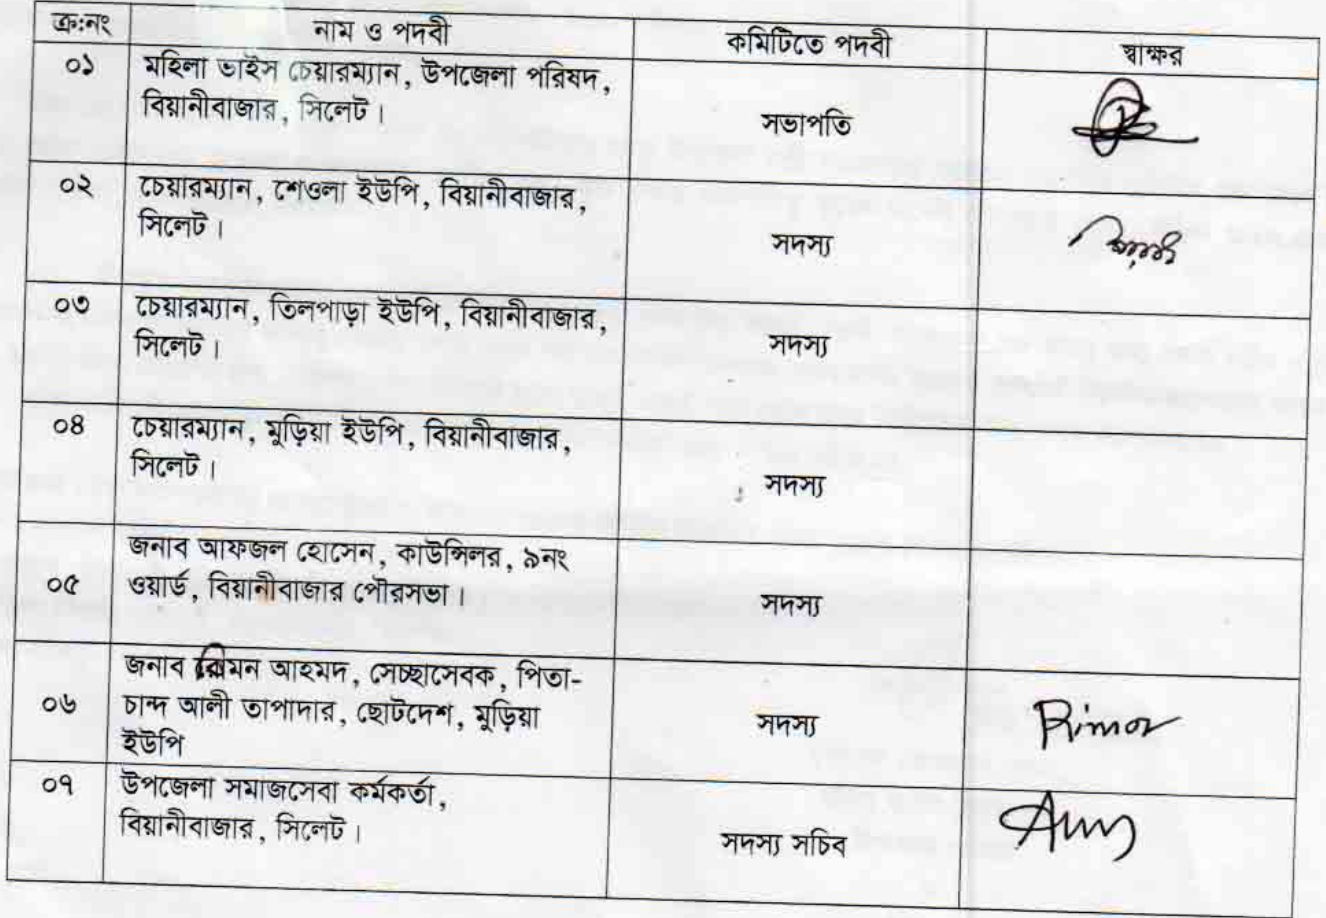 ক্র:নং নাম ও পদবী কমিটিতে পদবী স্বাক্ষর
০১ মহিলা ভাইস চেয়ারম্যান, উপজেলা পরিষদ,
বিয়ানীবাজার, সিলেট। সভাপতি
০২ চেয়ারম্যান, শেওলা ইউপি, বিয়ানীবাজার,
সিলেট। সদস্য
০৩ চেয়ারম্যান, তিলপাড়া ইউপি, বিয়ানীবাজার,
সিলেট। সদস্য
০৪ চেয়ারম্যান, মুড়িয়া ইউপি, বিয়ানীবাজার,
সিলেট। সদস্য
জনাব আফজল হোসেন, কাউন্সিলর, ৯নং
০৫ ওয়ার্ড, বিয়ানীবাজার পৌরসভা। সদস্য
জনাব রিমন আহমদ, সেচ্ছাসেবক, পিতা-
০৬ চান্দ আলী তাপাদার, ছোটদেশ, মুড়িয়া সদস্য Rimon
ইউপি
০৭ উপজেলা সমাজসেবা কর্মকর্তা,
বিয়ানীবাজার, সিলেট। সদস্য সচিব